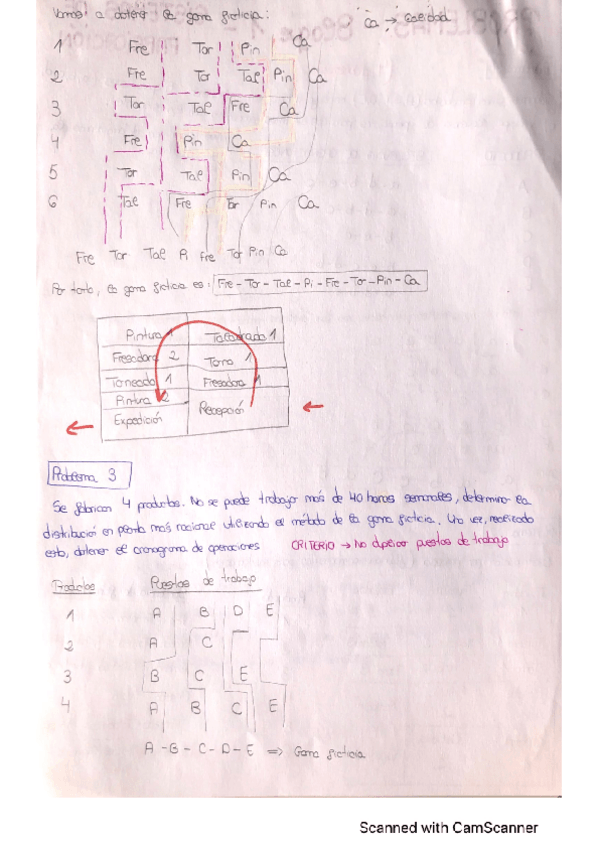 Vamos a obtener la gama ficticia: Ca → Calidad
1 Fre Tor Pin Ca
2 Fre Tor Tal Pin Ca
3 Tor Tal Fre Ca
4 Fre Pin Ca
5 Tor Tal Pin Ca
6 Tal Fre Tor Pin Ca
Fre Tor Tal Pi Fre Tor Pin Ca
Por tanto, la gama ficticia es: Fre - Tor - Tal - Pi - Fre - Tor - Pin - Ca
Pintura 1 Taladrado 1
Fresadora 2 Torno 1
Torneado 1 Fresadora 1
Pintura 2 Recepción
Expedición
Problema 3
Se fabrican 4 productos. No se puede trabajar más de 40 horas semanales, determinar la
distribución en planta más racional utilizando el método de la gama ficticia. Una vez, realizado
esto, obtener el cronograma de operaciones CRITERIO → No duplicar puestos de trabajo
Productos Puestos de trabajo
1 A B D E
2 A C
3 B C E
4 A B C E
A - B - C - D - E => Gama ficticia
Scanned with CamScanner